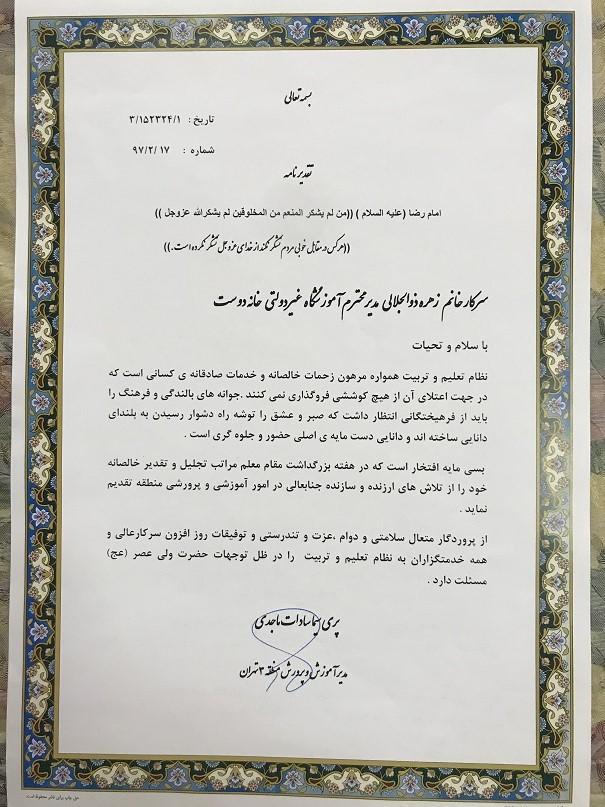 بسمه تعالی
تاریخ : ۳/۱۵۲۳۲۴/۱
شماره : ۹۷/۲/۱۷
تقدیرنامه
امام رضا (علیه السلام ) ((من لم یشکر المنعم من المخلوقین لم یشکرالله عزوجل ))
((هرکس در مقابل خوبی مردم تشکر نکند از خدای عزوجل تشکر نکرده است.))
سرکار خانم زهره ذوالجلالی مدیر محترم آموزشگاه غیردولتی خانه دوست
با سلام و تحیات
نظام تعلیم و تربیت همواره مرهون زحمات خالصانه و خدمات صادقانه ی کسانی است که
در جهت اعتلای آن از هیچ کوششی فروگذاری نمی کنند .جوانه های بالندگی و فرهنگ را
باید از فرهیختگانی انتظار داشت که صبر و عشق را توشه راه دشوار رسیدن به بلندای
دانایی ساخته اند و دانایی دست مایه ی اصلی حضور و جلوه گری است .
بسی مایه افتخار است که در هفته بزرگداشت مقام معلم مراتب تجلیل و تقدیر خالصانه
خود را از تلاش های ارزنده و سازنده جنابعالی در امور آموزشی و پرورشی منطقه تقدیم
نماید .
از پروردگار متعال سلامتی و دوام ،عزت و تندرستی و توفیقات روز افزون سرکارعالی و
همه خدمتگزاران به نظام تعلیم و تربیت را در ظل توجهات حضرت ولی عصر (عج)
مسئلت دارد .
پری سیماسادات ماجدی
مدیر آموزش و پرورش منطقه ۳ تهران
حق چاپ برای ناشر محفوظ است